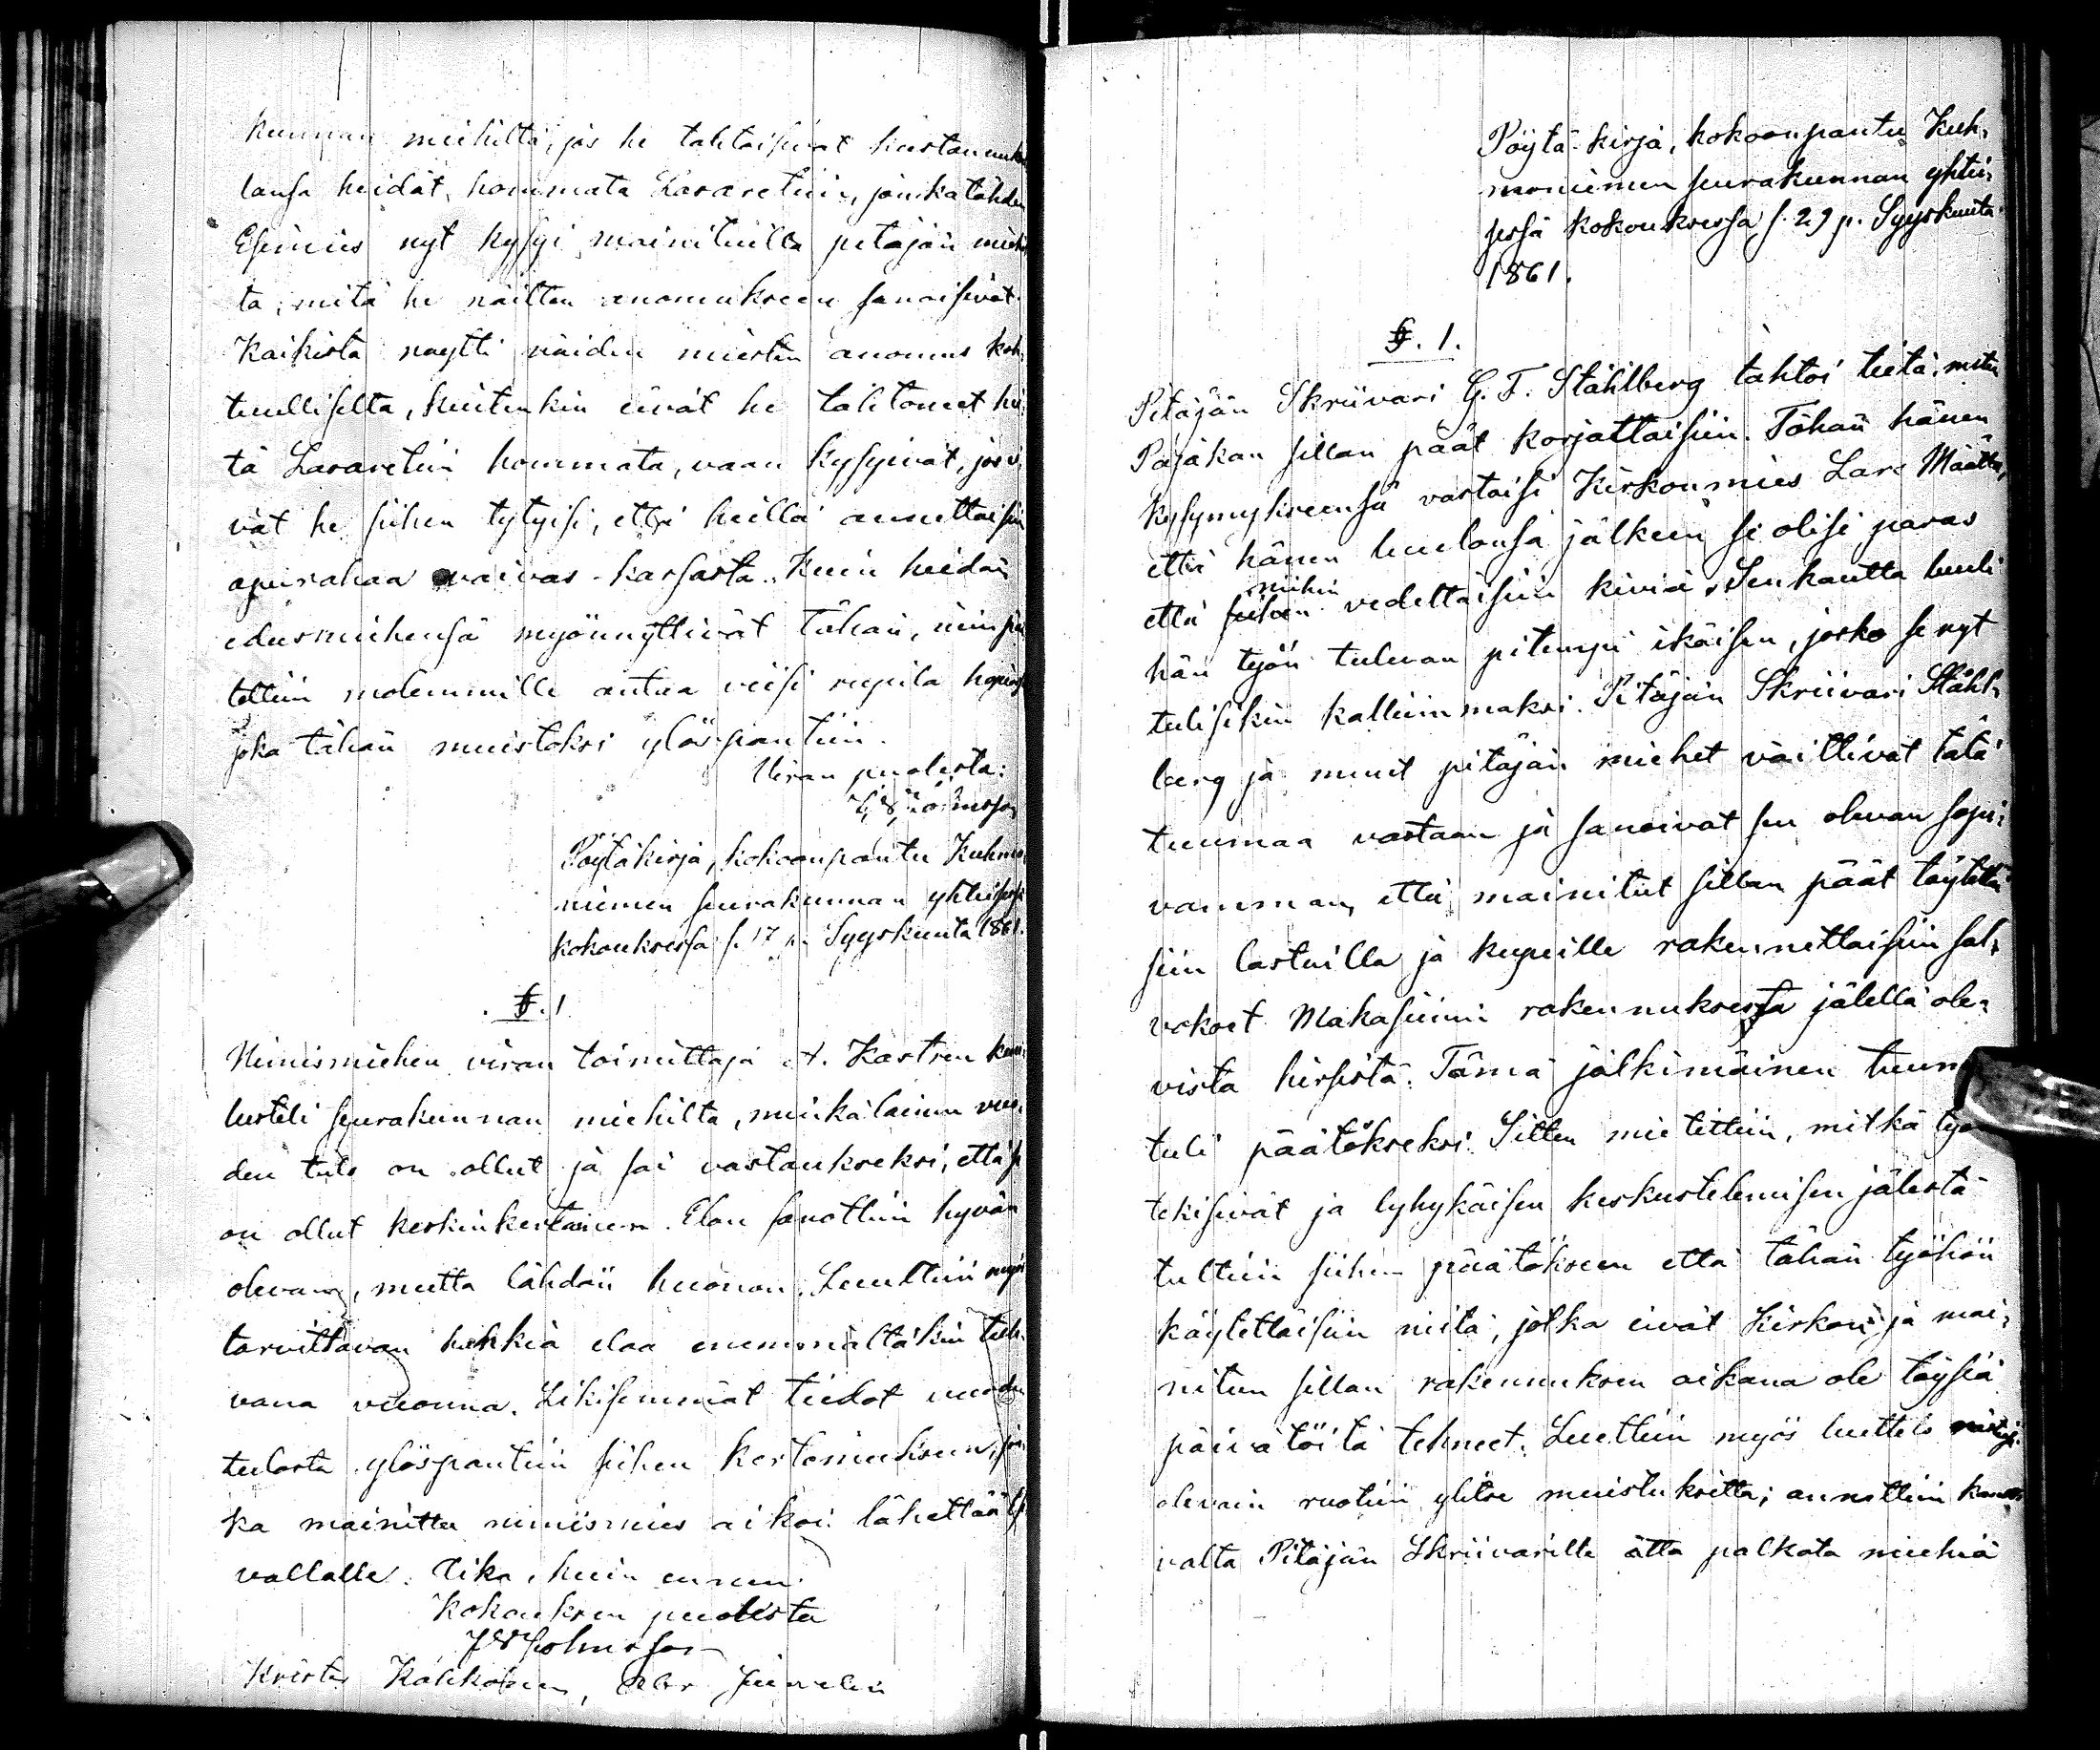 kunnan miehiltä, jos he tahtoisivat kustannuk
lansa heidät hommata Lasaretiin, jonka tähden
Esimies nyt kysyi mainituilta pitäjän miehil
tä, mitä he näitten anomukseen sanoisivat.
Kaikista näytti näiden miesten anomus koh-
tuulliselta, kuitenkin eivät he tahtoneet hei-
tä Lasaretiin hommata, vaan kysyivät, jos ei
vät he siihen tytyisi, että heille annettaisiin
apurahaa vaivas-kassasta. Kuin heidän
edusmiehensä myönnyttivät tähän, niin pää
tettiin molemmille antaa viisi ruplaa hopias
joka tähän muistoksi ylöspantiin.
Viran puolesta:
Pöytäkirja, kokoonpantu Kuhmo-
niemen seurakunnan yhteisessä
kokouksessa s. 17 p. Syyskuuta 1861.
§. 1
Nimismiehen viran toimittaja A. Kastren kuu-
lusteli seurakunnan miehiltä, minkälainen vuo-
den tulo on ollut ja sai vastaukseksi, että se
on ollut keskinkertainen. Elon sanottiin hyvän
olevan, mutta lähdön huonon. Luultiin myös
tarvittavan hankkia eloa enemmältäkin tule-
vana vuonna. Likisemmät tiedot vuoden
tulosta ylöspantiin siihen kertomukseen, jon-
ka mainittu nimismies aikoi lähettää
vallalle. Aika, kuin ennen.
Kokouksen puolesta
Krister Kähkönen, Abr Juvelin
Pöytä-kirja, kokoonpantu Kuh-
moniemen seurakunnan yhtei-
sessä kokouksessa s. 29 p. Syyskuuta
1861.
§. 1.
Pitäjän Skriivari G. F. Ståhlberg tahtoi tietä, miten
Pajakan sillan päät korjattaisiin. Tähän hänen
kysymykseensä vastaisi Kirkonmies Lars Määttä,
että hänen luulonsa jälkeen se olisi paras
niihin
että siihen vedettäisiin kiviä, Sen kautta luuli
hän työn tulevan pitempi ikäisen, josko se nyt
tulisikin kalliimmaksi. Pitäjän Skriivari Ståhl-
berg ja muut pitäjän miehet väittivät tätä
tuumaa vastaan ja sanoivat sen olevan sopi-
vamman, että mainitut sillan päät täytettäi
siin lastuilla ja kupeille rakennettaisiin sal-
vokset Makasiinin rakennuksesta jälellä ole-
vista hirsistä. Tämä jälkimäinen tuuma
tuli päätökseksi. Sitten mietittiin, mitkä työn
tekisivät ja lyhykäisen keskustelemisen jälestä
tultiin siihen päätökseen että tähän työhön
käytettäisiin niitä, jotka eivät Kirkon ja mai-
nitun sillan rakennuksen aikana ole täysiä
päivätöitä tehneet. Luettiin myös luettelo
olevain ruotiin ylitse muistuksitta; annettiin
valta Pitäjän Skriivarille otta palkata miehiä